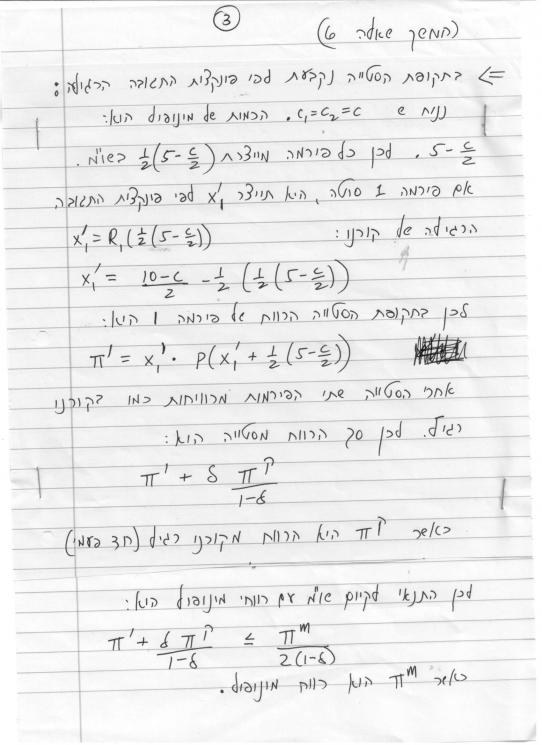 ③
(המשך שאלה 6)
<= בתקופת הסטייה נקבעת לפי פונקצית התגובה הרגילה:
נניח ש c₁=c₂=c. הכמות של מונופול היא:
5-c/2. לכן כל פירמה מייצרת ½(5-c/2) בשו"מ.
אם פירמה 1 סוטה, היא תייצר x₁' לפי פונקצית התגובה
הרגילה של קורנו: x₁' = R₁(½(5-c/2))
x₁' = (10-c)/2 - ½(½(5-c/2))
לכן בתקופת הסטייה הרווח של פירמה 1 היא:
π' = x₁' · P(x₁' + ½(5-c/2))
אחרי הסטייה שתי הפירמות מרוויחות כמו בקורנו
רגיל. לכן סך הרווח מסטייה הוא:
π' + δ πᵖ/(1-δ)
כאשר πᵖ היא הרווח מקורנו רגיל (חד פעמי)
לכן התנאי לקיום שו"מ עם רווחי מונופול היא:
π' + δπᵖ/(1-δ) ≤ πᵐ/(2(1-δ))
כאשר πᵐ הוא רווח מונופול.